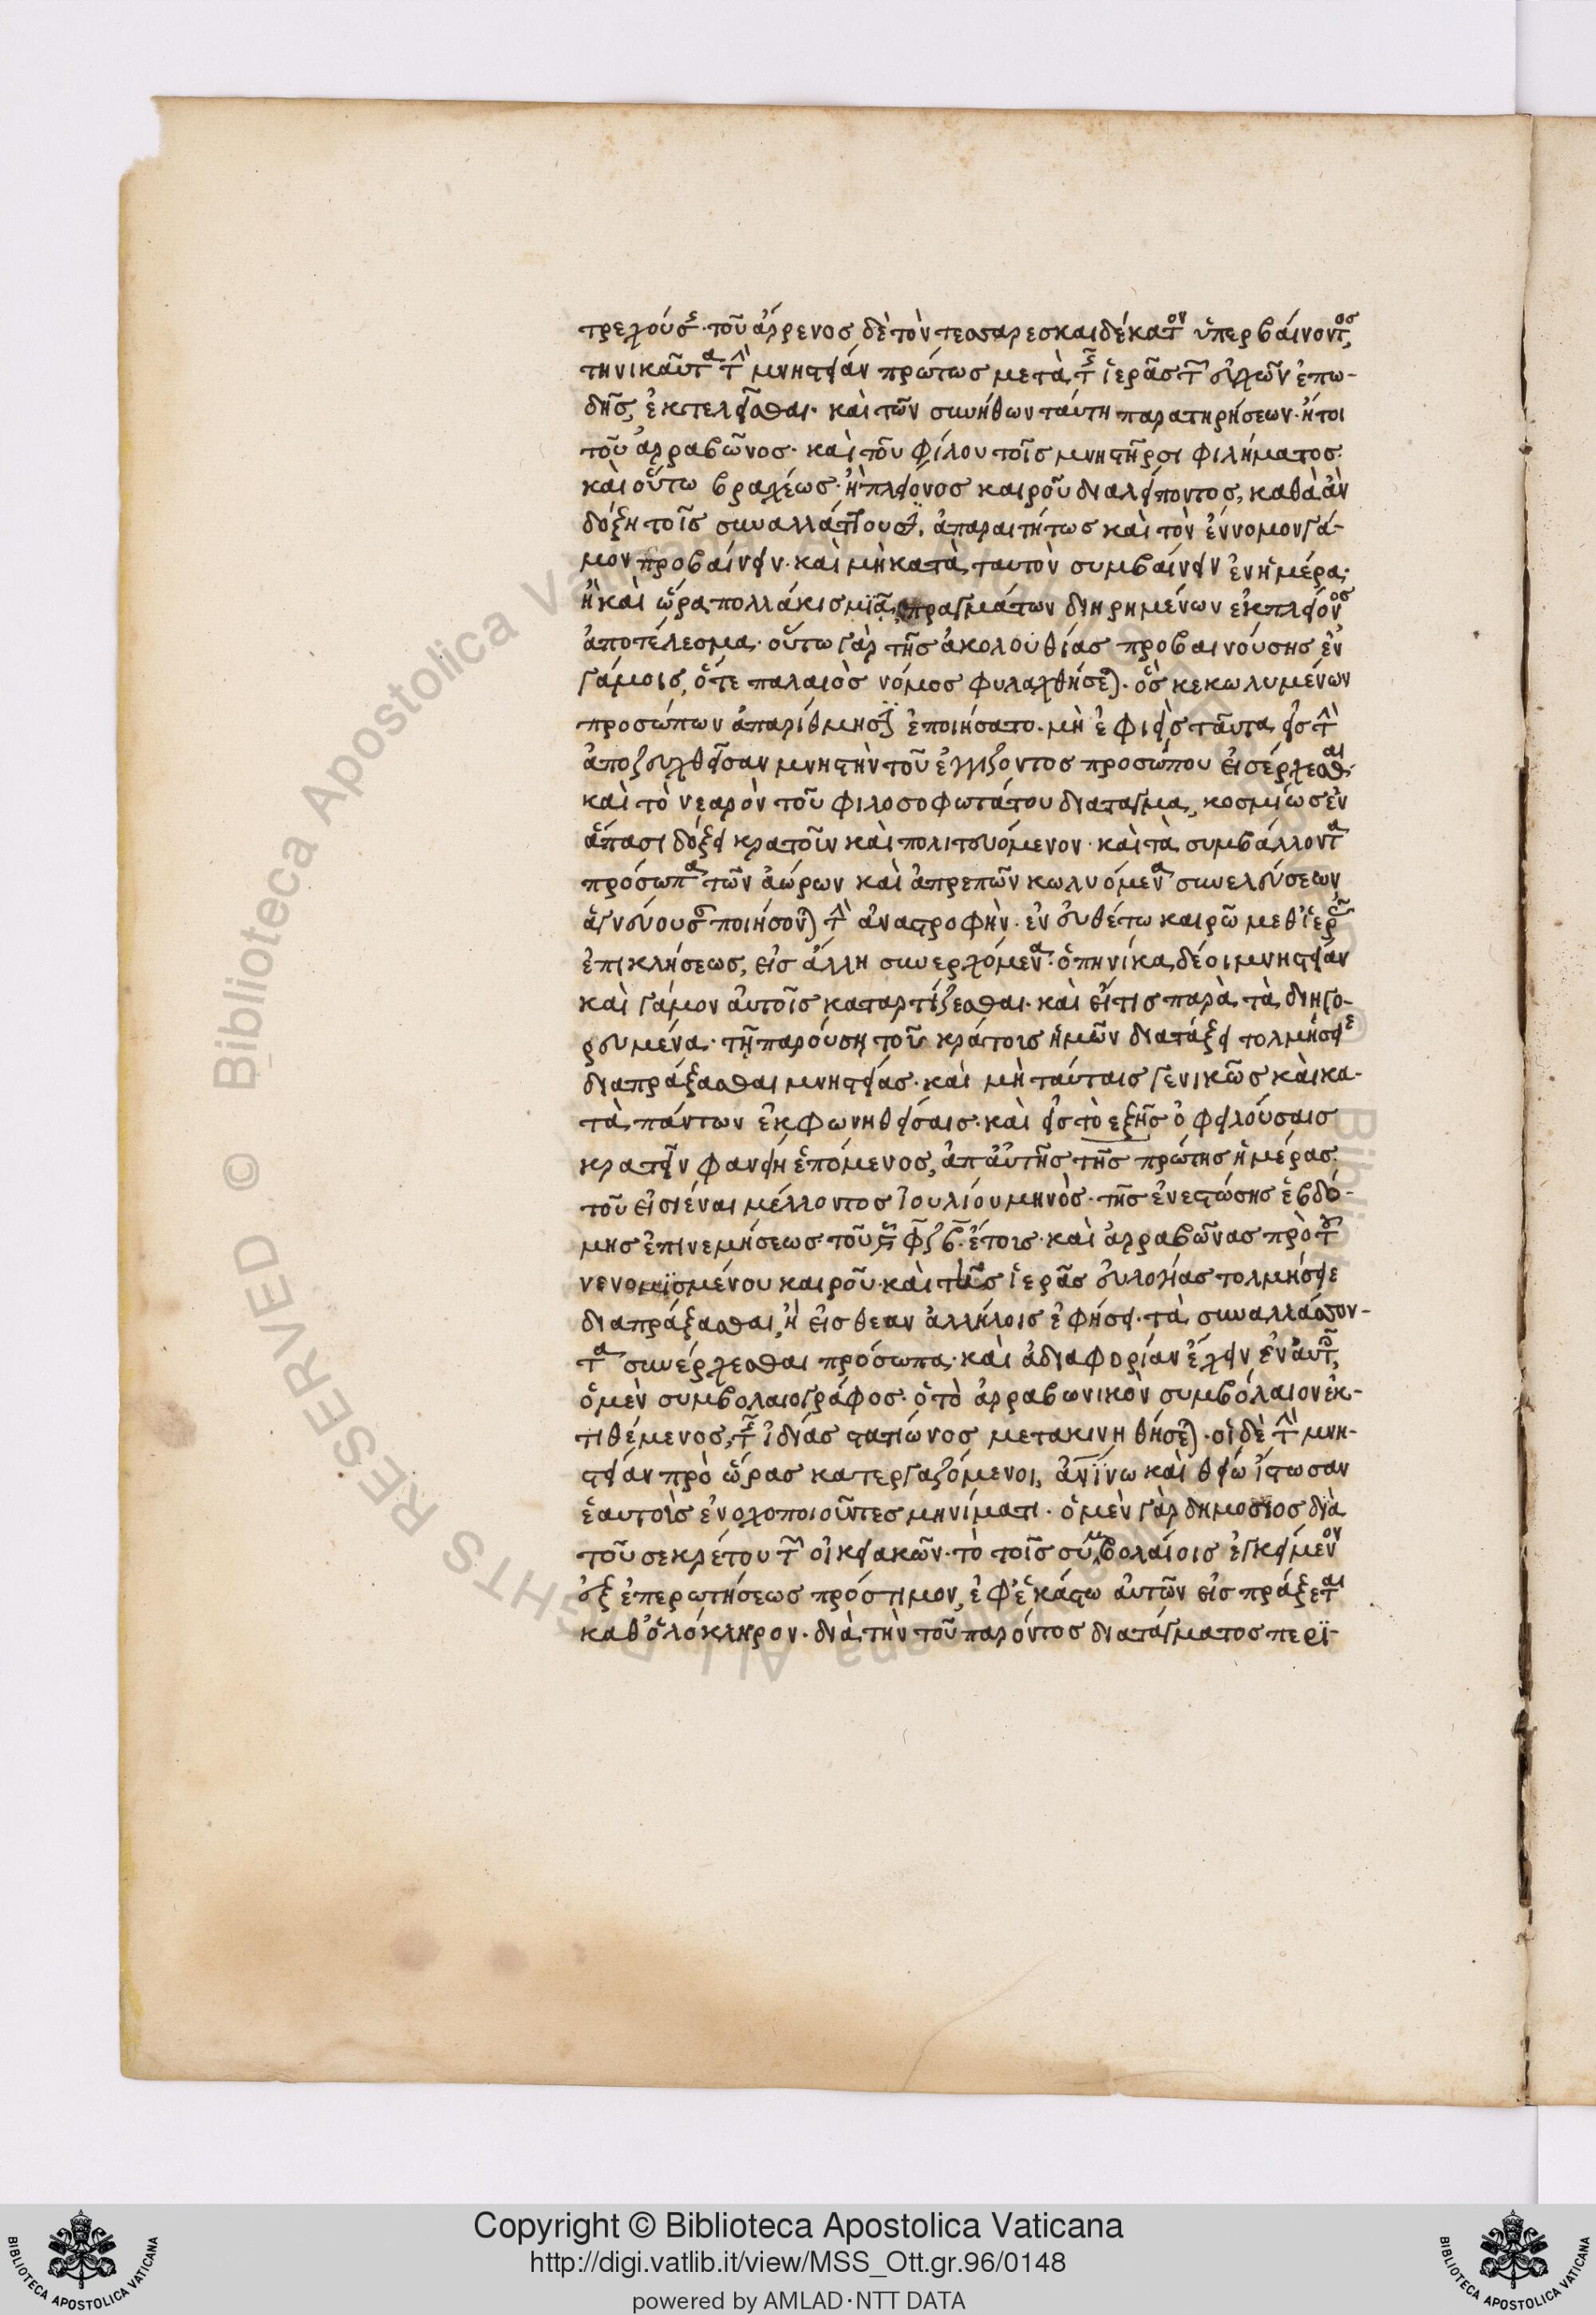 τρεχούσης· τοῦ ἄρρενος δὲ τὸν τεσσαρεσκαιδέκατον ὑπερβαίνοντος,
τηνικαῦτα τὴν μνηστείαν πρώτως μετὰ τῆς ἱερᾶς τῶν εὐχῶν ἐπω-
δῆς, ἐκτελεῖσθαι· καὶ τῶν συνήθων ταύτη παρατηρήσεων· ἤτοι
τοῦ ἀρραβῶνος· καὶ τοῦ φίλου τοῖς μνηστῆρσι φιλήματος·
καὶ οὕτω βραχέως· ἢ πλείονος καιροῦ διαλείποντος, καθὰ ἂν
δόξη τοῖς συναλλάττουσι, ἀπαραιτήτως καὶ τὸν ἔννομον γά-
μον προβαίνειν· καὶ μὴ κατὰ ταυτὸν συμβαίνειν ἐν ἡμέρα·
ἢ καὶ ὥρα πολλάκις μϊᾷ, πραγμάτων διηρημένων ἐκ πλείονος
ἀποτέλεσμα· οὕτω γὰρ τῆς ἀκολουθίας προβαινούσης ἐν
γάμοις, ὅτε παλαιὸς νόμος φυλαχθήσεται· ὃς κεκωλυμένων
προσώπων ἀπαρίθμησιν ἐποιήσατο· μὴ ἐφιεὶς ταῦτα εἰς τὴν
ἀποζευχθεῖσαν μνηστὴν τοῦ ἐγγίζοντος προσώπου εἰσέρχεσθαι·
καὶ τὸ νεαρὸν τοῦ φιλοσοφωτάτου διάταγμα, κοσμίως ἐν
ἅπασι δόξει κρατοῦν καὶ πολιτευόμενον· καὶ τὰ συμβάλλοντα
πρόσωπα τῶν ἀώρων καὶ ἀπρεπῶν κωλυόμενα συνελεύσεων
ἁγνεύουσαν ποιήσονται τὴν ἀναστροφὴν· ἐν εὐθέτω καιρῷ μεθ' ἱερῶν
ἐπικλήσεως, εἰς ἄλλη συνερχόμενα· ὁπηνίκα δέοι μνηστείαν
καὶ γάμον αὐτοῖς καταρτίζεσθαι· καὶ εἴ τις παρὰ τὰ διηγο-
ρευμένα· τῆ παρούση τοῦ κράτους ἡμῶν διατάξει τολμήσειε
διαπράξασθαι μνηστείας· καὶ μὴ ταύταις γενικῶς καὶ κα-
τὰ πάντων ἐκφωνηθείσαις· καὶ εἰς τὸ εξῆς ὀφειλούσαις
κρατεῖν φανείη ἑπόμενος, ἀπ' αὐτῆς τῆς πρώτης ἡμέρας
τοῦ εἰσιέναι μέλλοντος Ἰουλίου μηνὸς· τῆς ἐνεστώσης ἑβδό-
μης ἐπινεμήσεως τοῦ ͵ςφϟβ· ἔτους· καὶ ἀρραβῶνας πρὸ τοῦ
νενομϊσμένου καιροῦ· καὶ τῆς ἱερᾶς εὐλογίας τολμήσειε
διαπράξασθαι, ἢ εἰς θεαν ἀλλήλοις ἐφήσει· τὰ συναλλάσσον-
τα συνέρχεσθαι πρόσωπα· καὶ ἀδιαφορίαν ἔχειν ἐν αὐτοῖς,
ὁ μὲν συμβολαιογράφος· ὁ τὸ ἀρραβωνικὸν συμβόλαιον ἐκ-
τιθέμενος, τῆς ἰδίας στατιώνος μετακινηθήσεται· οἱ δὲ τὴν μνη-
στείαν πρὸ ὥρας κατεργαζόμενοι, ἀνϊνω καὶ θείω ἴστωσαν
ἑαυτοὺς ἐνοχοποιοῦντες μηνίματι· ὁ μὲν γὰρ δημόσιος διὰ
τοῦ σεκρέτου τῶν οἰκειακῶν· τὸ τοῖς συμβολαίοις ἐγκείμενον
ἐξ ἐπερωτήσεως πρόστιμον, ἐφ' ἑκάστω αὐτῶν εἰσπράξεται
καθ' ὁλόκληρον· διὰ τὴν τοῦ παρόντος διατάγματος περϊ-
© Biblioteca Apostolica Vaticana
ALL RIGHTS RESERVED
BIBLIOTECA APOSTOLICA VATICANA
Copyright © Biblioteca Apostolica Vaticana
http://digi.vatlib.it/view/MSS_Ott.gr.96/0148
powered by AMLAD·NTT DATA
BIBLIOTECA APOSTOLICA VATICANA